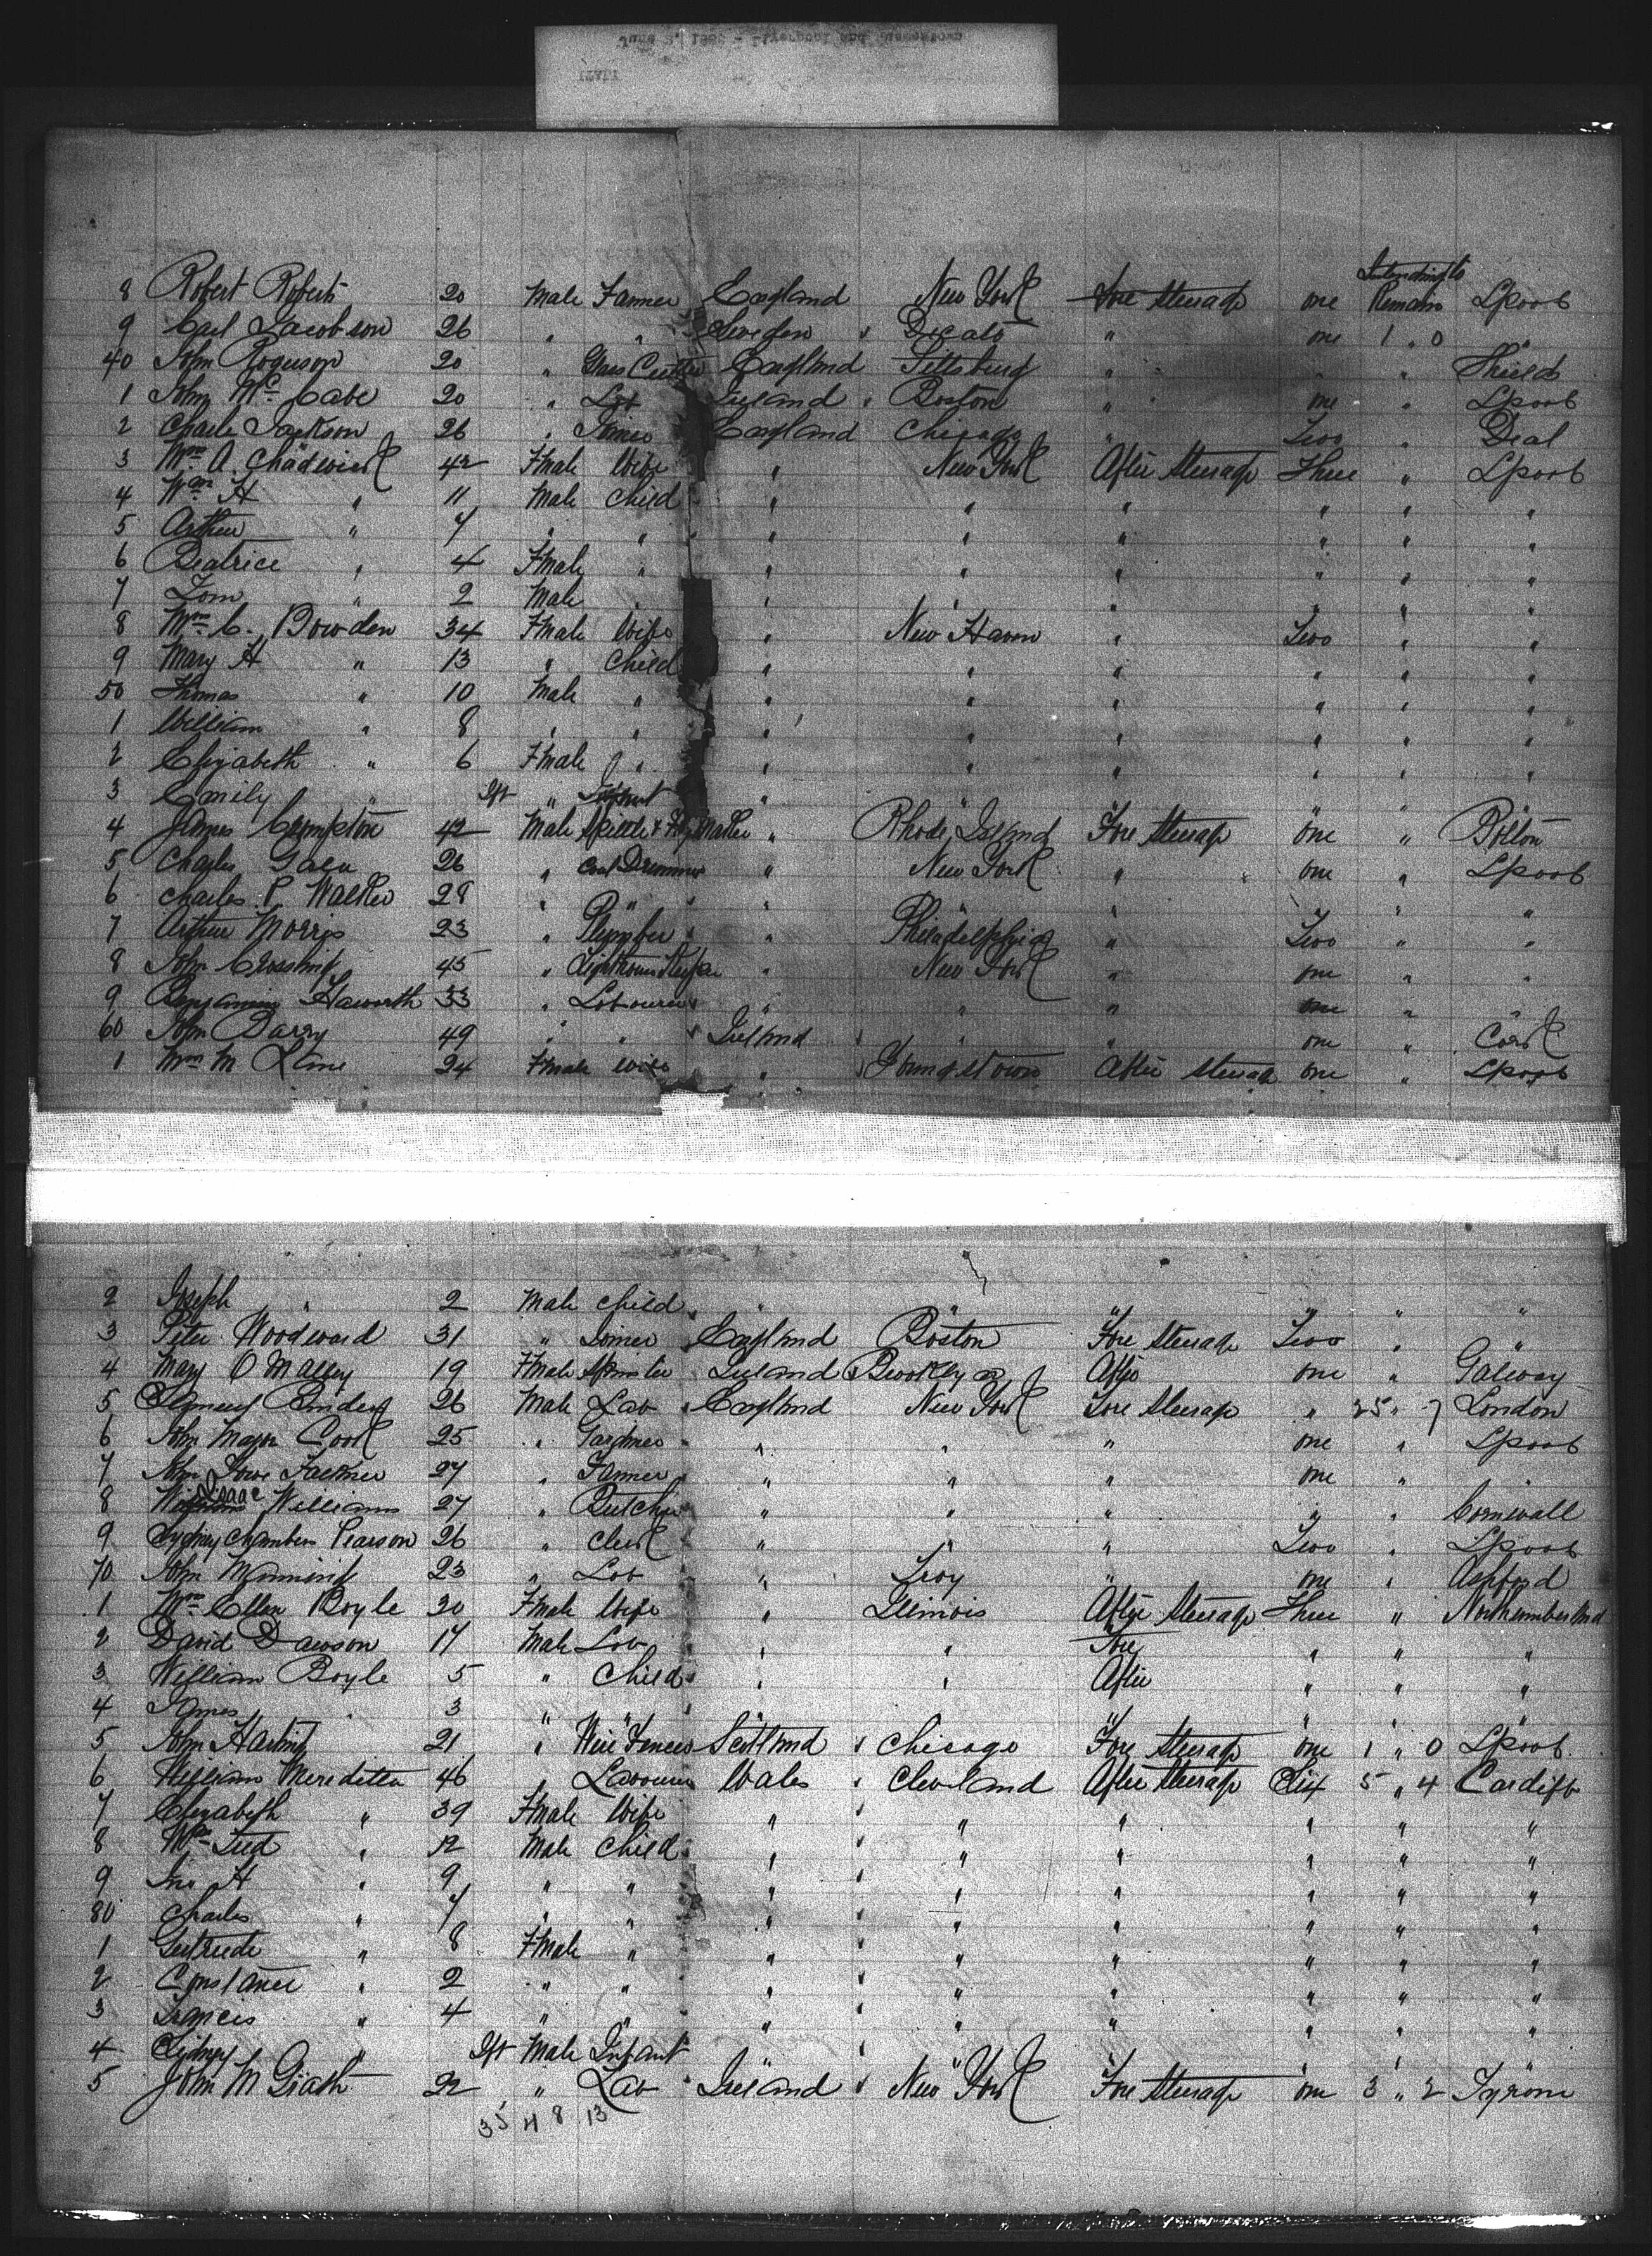 8 Robert Roberts 20 Male Farmer England New York Fore Steerage one Intending to Remain Lpool
9 Carl Jacobson 26 " " Sweden " " one 1 " 0 "
40 John Rogerson 20 " Glass Cutter England Pittsburg " " " Shields
1 John Mc Cabe 20 " Lab Ireland Boston " one " Lpool
2 Charles Jackson 26 " England Chicago " Two " Deal
3 Mrs A. Chadwick 42 Fmale Wife " New York After Steerage Three " Lpool
4 Wm H " 11 Male Child " " " " " "
5 Arthur " 7 " " " " " " " "
6 Beatrice " 4 Fmale " " " " " " "
7 Tom " 2 Male " " " " " " "
8 Mrs C. Bowden 34 Fmale Wife " New Haven " Two " "
9 Mary H " 13 " Child " " " " " "
50 Thomas " 10 Male " " " " " " "
1 William " 8 " " " " " " " "
2 Elizabeth " 6 Fmale " " " " " " "
3 Emily " Ift " Infant " " " " " "
4 James Crompton 42 Male " Rhode Island Fore Steerage one " Bolton
5 Charles 26 " " New York " one " Lpool
6 Charles P. Walker 28 " " " " " " " "
7 Arthur Morris 23 " Plumber " Philadelphia " Two " "
8 John 45 " Lighthouse Keeper " New York " one " "
9 Benjamin Haworth 33 " Labourer " " " one " "
60 John Barry 49 " " Ireland " " one " Cork
1 Mrs M Lane 24 Fmale wife " Youngstown After Steerage one " Lpool
2 Joseph " 2 Male Child " " " " " "
3 Peter Woodward 31 " Joiner England Boston Fore Steerage Two " "
4 Mary O Malley 19 Fmale Spinster Ireland Brooklyn After one " Galway
5 26 Male Lab England New York Fore Steerage " 25 " 7 London
6 John Major Cook 25 " Gardner " " " one " Lpool
7 John Lowe 27 " Farmer " " " one "
8 Isaac Williams 27 " Butcher " " " " " Cornwall
9 Sydney Chambers Pearson 26 " Clerk " " " Two " Lpool
70 John 23 " Lab " Troy " one " Ashford
1 Mrs Ellen Boyle 30 Fmale Wife " Illinois After Steerage Three " Northumberland
2 David Dawson 17 Male Lab " " Fore " " "
3 William Boyle 5 " Child " " After " " "
4 James " 3 " " " " " " " "
5 John 21 " Scotland Chicago Fore Steerage one 1 " 0 Lpool
6 William Meredith 46 " Labourer Wales Cleveland After Steerage Six 5 " 4 Cardiff
7 Elizabeth " 39 Fmale Wife " " " " " "
8 Wm " 12 Male Child " " " " " "
9 Jno H " 9 " " " " " " " "
80 Charles " 7 " " " " " " " "
1 Gertrude " 8 Fmale " " " " " " "
2 Constance " 2 " " " " " " " "
3 Francis " 4 " " " " " " " "
4 Sidney " Ift Male Infant " " " " " "
5 John M Grath 22 " Lab Ireland New York Fore Steerage one 3 " 2 Tyrone
35 4 8 13